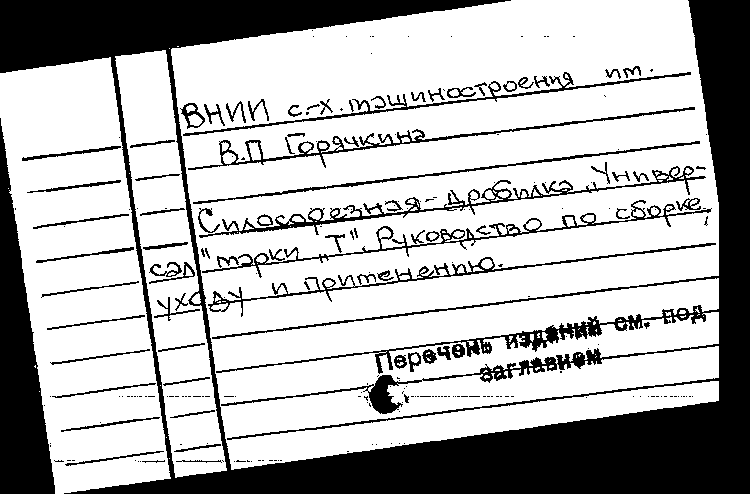 ВНИИ с.-х. машиностроения им.
В.П Горячкина
Силосорезная-дробилка „Универ-
сал" марки „Т". Руководство по сборке,
уходу и применению.
Перечень изданий см. под
заглавием